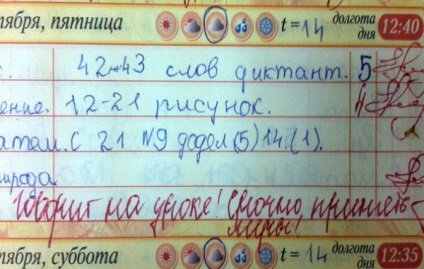 тября, пятница t = 14 долгота дня 12:40
42-43 слов диктант. 5
ение. 12-21 рисунок. 4
атем. С 21 №9 додел (5) 14.(1).
рирода
Говорит на уроке! Срочно принять
меры!
тября, суббота t = 14 долгота дня 12:35